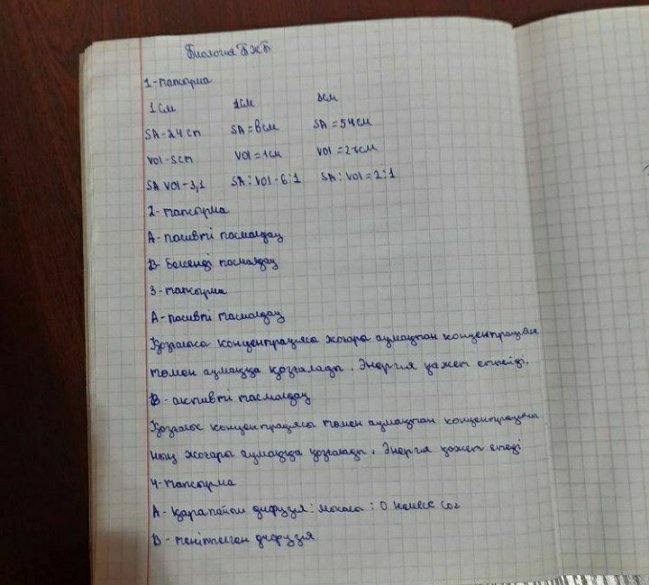 Биология БЖБ
1-тапсырма
1см 1см 3см
SA-24 cm SA=6см SA=54см
VOl-5cm VOl=1см VOl=27см
SA VOl-3,1 SA:VOl-6:1 SA:VOl=2:1
2-тапсырма
А-пасивті тасмалдау
В-белсенді тасмалдау
3-тапсырма
А-пасивті тасмалдау
Қозғалыс концентрацияса жоғары аумақтан концентрацияса
төмен аумаққа қозғалады. Энергия қажет етпейді.
В-активті тасмалдау
Қозғалыс концентрациясы төмен аумақтан концентрацияса
ның жоғары аумаққа қозғалады. Энергия қажет етеді
4-тапсырма
А-қарапайым диффузія: : О немесе со2
В- диффузія